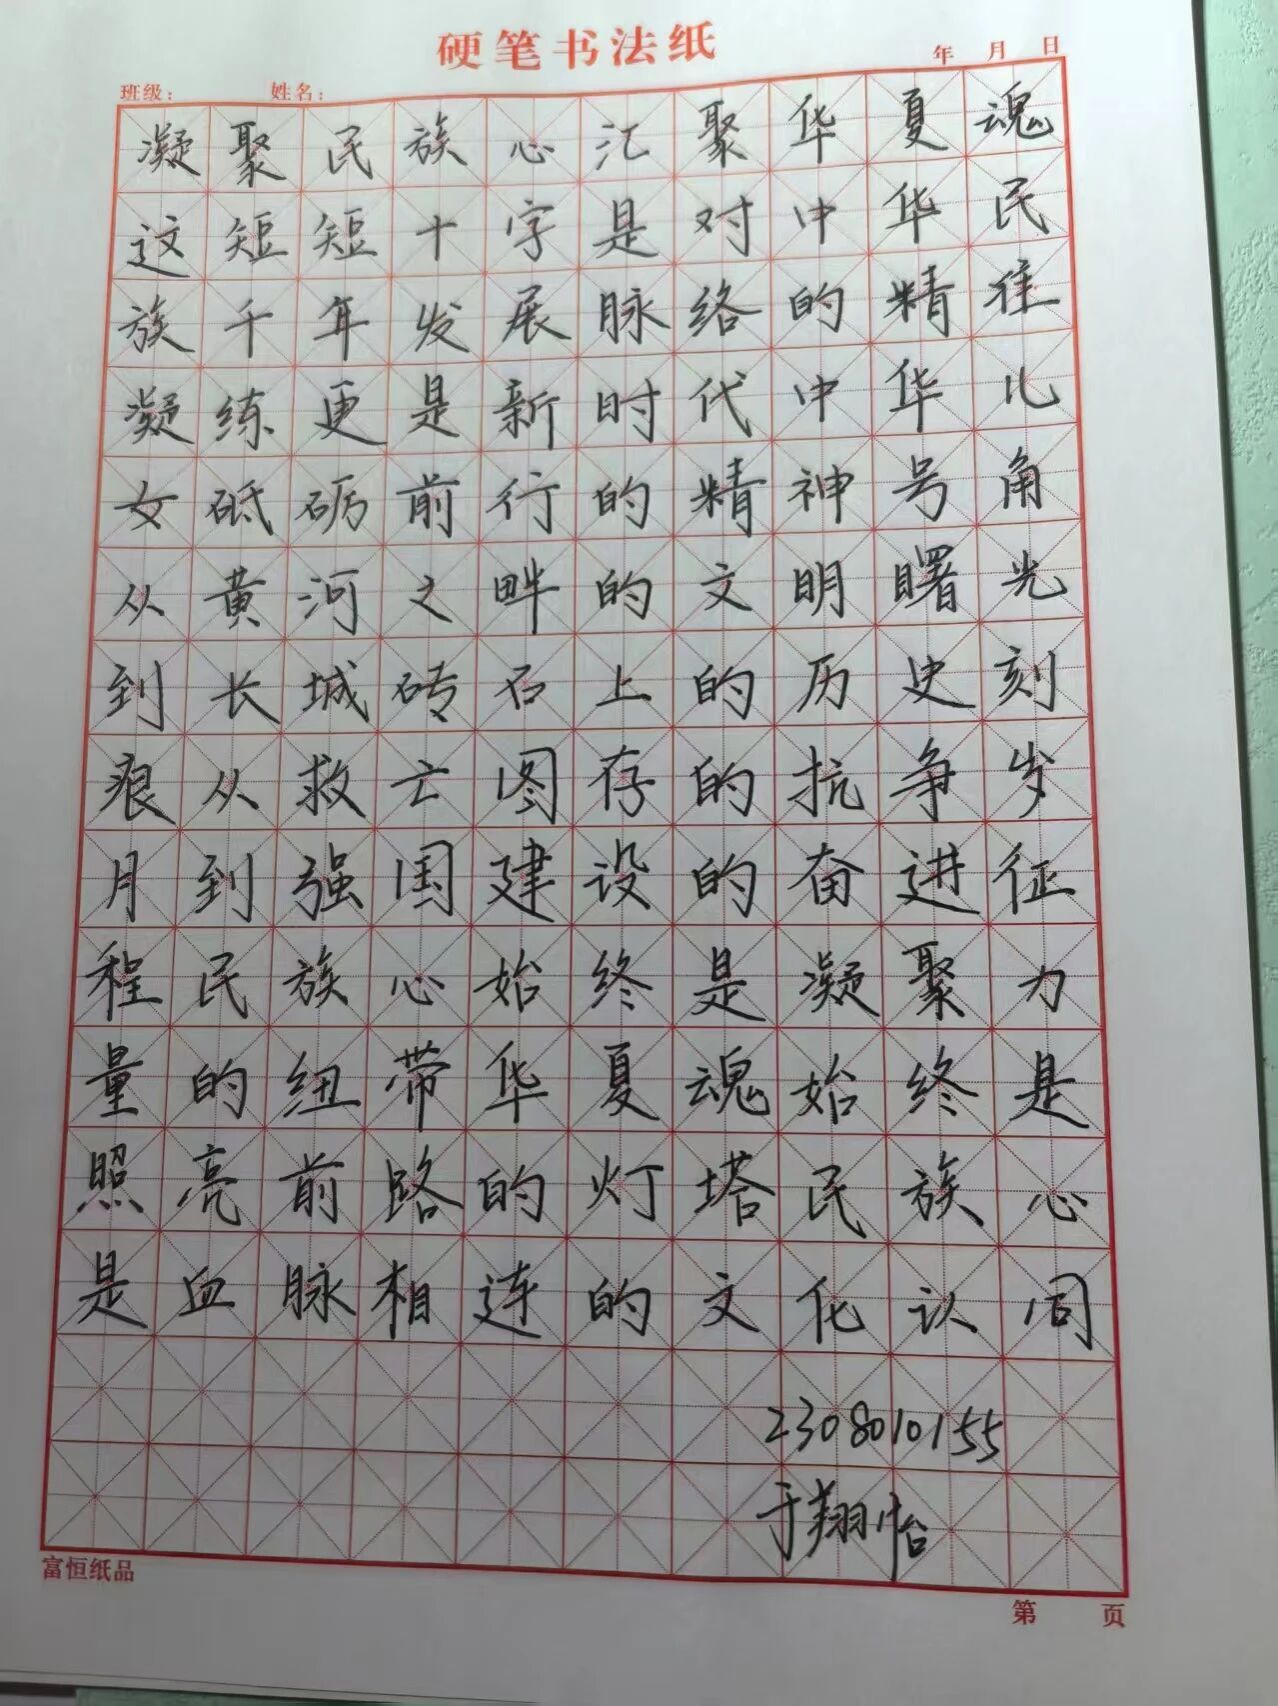 硬笔书法纸
班级： 姓名： 年 月 日
凝聚民族心汇聚华夏魂
这短短十字是对中华民
族千年发展脉络的精往
凝练更是新时代中华儿
女砥砺前行的精神号角
从黄河之畔的文明曙光
到长城砖石上的历史刻
痕从救亡图存的抗争岁
月到强国建设的奋进征
程民族心始终是凝聚力
量的纽带华夏魂始终是
照亮前路的灯塔民族心
是血脉相连的文化认同
2308010155
于翔怡
富恒纸品
第 页